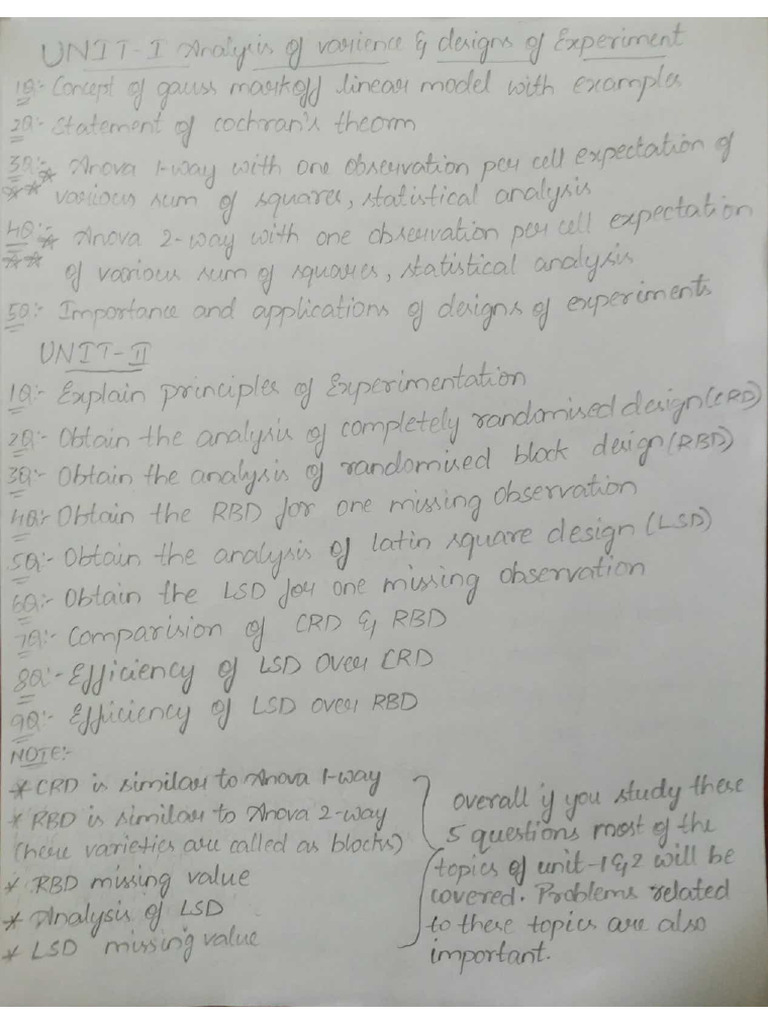 UNIT-I Analysis of varience & designs of Experiment
1Q:- Concept of gauss markoff linear model with examples
2Q:- Statement of cochran's theorm
3Q:- * Anova 1-way with one observation per cell expectation of
** various sum of squares, statistical analysis
4Q:- * Anova 2-way with one observation per cell expectation
** of various sum of squares, statistical analysis
5Q:- Importance and applications of designs of experiments
UNIT-II
1Q:- Explain principles of Experimentation
2Q:- Obtain the analysis of completely randomised design (CRD)
3Q:- Obtain the analysis of randomised block design (RBD)
4Q:- Obtain the RBD for one missing observation
5Q:- Obtain the analysis of latin square design (LSD)
6Q:- Obtain the LSD for one missing observation
7Q:- Comparision of CRD & RBD
8Q:- Efficiency of LSD over CRD
9Q:- Efficiency of LSD over RBD
NOTE:-
* CRD is similar to Anova 1-way
* RBD is similar to Anova 2-way
(here varieties are called as blocks)
* RBD missing value
* Analysis of LSD
* LSD missing value
overall if you study these
5 questions most of the
topics of unit-1 & 2 will be
covered. Problems related
to these topics are also
important.